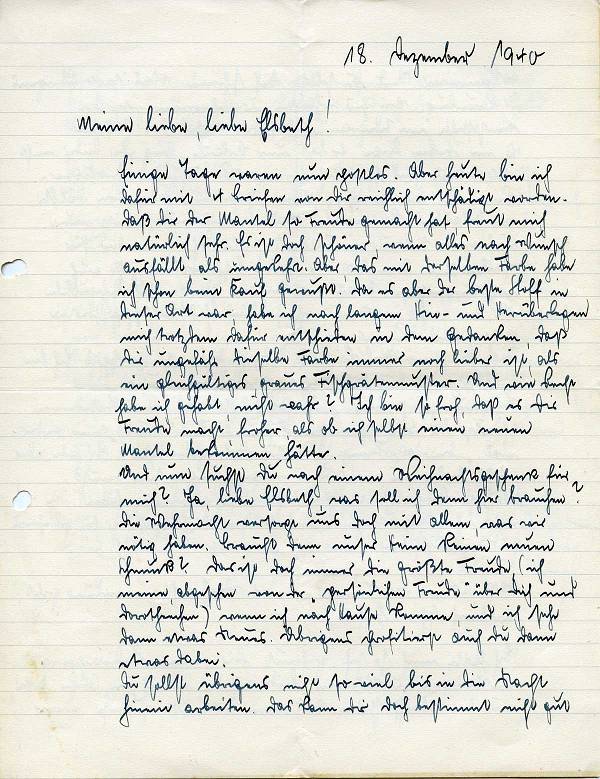 18. Dezember 1940
Meine liebe, liebe Elsbeth!
Einige Tage waren nun postlos. Aber heute bin ich
dafür mit 4 Briefen von Dir reichlich entschädigt worden.
Daß Dir der Mantel so Freude gemacht hat freut mich
natürlich sehr. Es ist doch schöner, wenn alles nach Wunsch
ausfällt als umgekehrt. Aber das mit derselben Farbe habe
ich schon beim Kauf gewußt. Da es aber der beste Stoff in
dieser Art war, habe ich nach langem Hin- und Herüberlegen
mich trotzdem dafür entschieden in dem Gedanken, daß
Dir ungefähr dieselbe Farbe immer noch lieber ist, als
ein gleichgültiges graues Fischgrätenmuster. Und wie Recht
habe ich gehabt nicht wahr? Ich bin so froh, daß es Dir
Freude macht, froher als ob ich selbst einen neuen
Mantel bekommen hätte.
Und nun suchst Du nach einem Weihnachtsgeschenk für
mich? Ja, liebe Elsbeth, was soll ich denn hier brauchen?
Die Wehrmacht versorgt uns doch mit allem, was wir
nötig haben. Braucht denn unser Heim keinen neuen
Schmuck? Das ist doch immer die größte Freude, (ich
meine, abgesehen von der "persönlichen Freude" über Dich und
Dorothechen) wenn ich nach Hause komme, und ich sehe
dann etwas Neues. Übrigens profitierst auch Du dann
etwas dabei.
Du sollst übrigens nicht so viel bis in die Nacht
hinein arbeiten. Das kann Dir doch bestimmt nicht gut